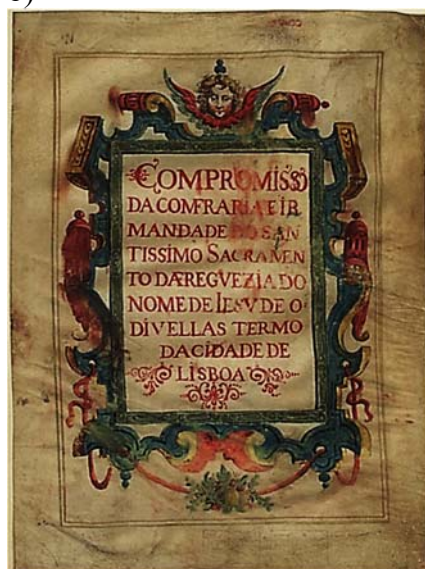 COMPROMISSO
DA COMFRARIA E IR
MANDADE DO SAN
TISSIMO SACRAMEN
TO DA FREGVEZIA DO
NOME DE IESV DE O
DIVELLAS TERMO
DA CIDADE DE
LISBOA